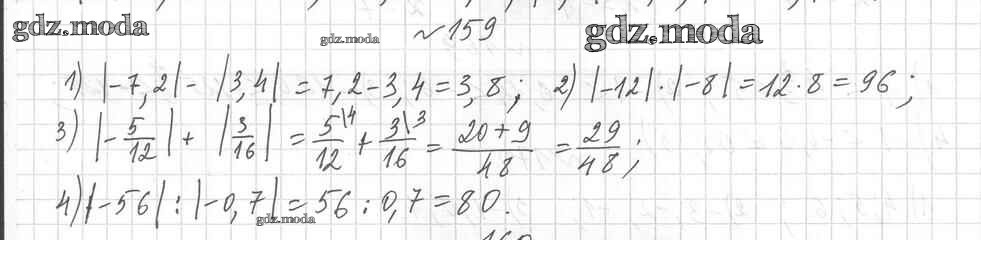 gdz.moda gdz.moda ~159 gdz.moda
1) |-7,2| - |3,4| = 7,2-3,4 = 3,8; 2) |-12|·|-8| = 12·8 = 96;
3) |-5/12| + |3/16| = 5\4/12 + 3\3/16 = 20+9/48 = 29/48;
4) |-56| : |-0,7| = 56 : 0,7 = 80.
gdz.moda